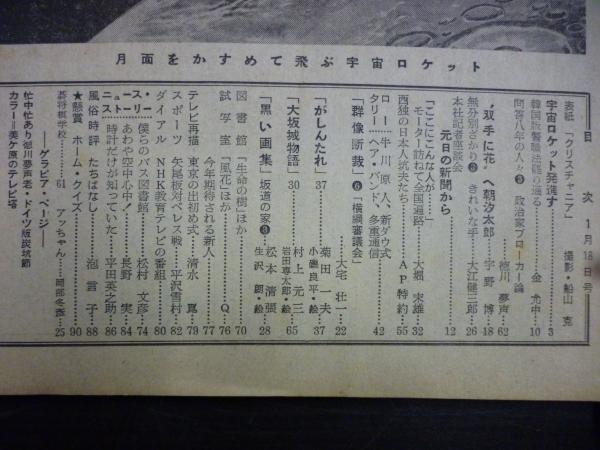 月面をかすめて飛ぶ宇宙ロケット
目次 1月18日号
表紙「クリスチャニア」 撮影・船山 克
宇宙ロケット発進す 3
韓国版警職法罷り通る 金 允中 10
問答八年の人々❸ 政治家ブローカー論 徳川夢声 62
〝双手に花〟へ朝汐太郎 宇野 博 18
無分別ざかり❷ きれいな手 大江健三郎 26
本社記者座談会
元日の新聞から 12
「ここにこんな人が……」
モーター訪ねて全国遍路 大堀末雄 32
西独の日本人坑夫たち AP特約 55
ロータリー 牛川原人、新ダウ式
ヘア・バンド、多重通信 42
「群像断裁」❻「横綱審議会」 大宅壮一 22
「がしんたれ」 37 菊田一夫
小磯良平・絵 37
「大坂城物語」 30 村上元三
岩田専太郎・絵 65
「黒い画集」坂道の家❸ 松本清張
生沢 朗・絵 28
図書館 「生命の樹」ほか 70
試写室 「風花」ほか Q 76
今年期待される新人 77
テレビ再描 東京の出初め式 清水 崑 79
スポーツ 矢尾板対ペレス戦 平沢雪村 82
ダイアル NHK教育テレビの番組 80
ニュース・ストーリー
僕らのバス図書館 松村文彦 74
あわや空中心中! 長野 実 84
時計だけが知っていた 平田英之助 86
風俗時評 たちばなし 泡 言子 88
★懸賞 ホーム・クイズ 90
碁将棋学校 61 アッちゃん 岡部冬彦 25
――グラビア・ページ――
忙中忙あり徳川夢声老・ドイツ版炭坑節
カラー=美ケ原のテレビ塔